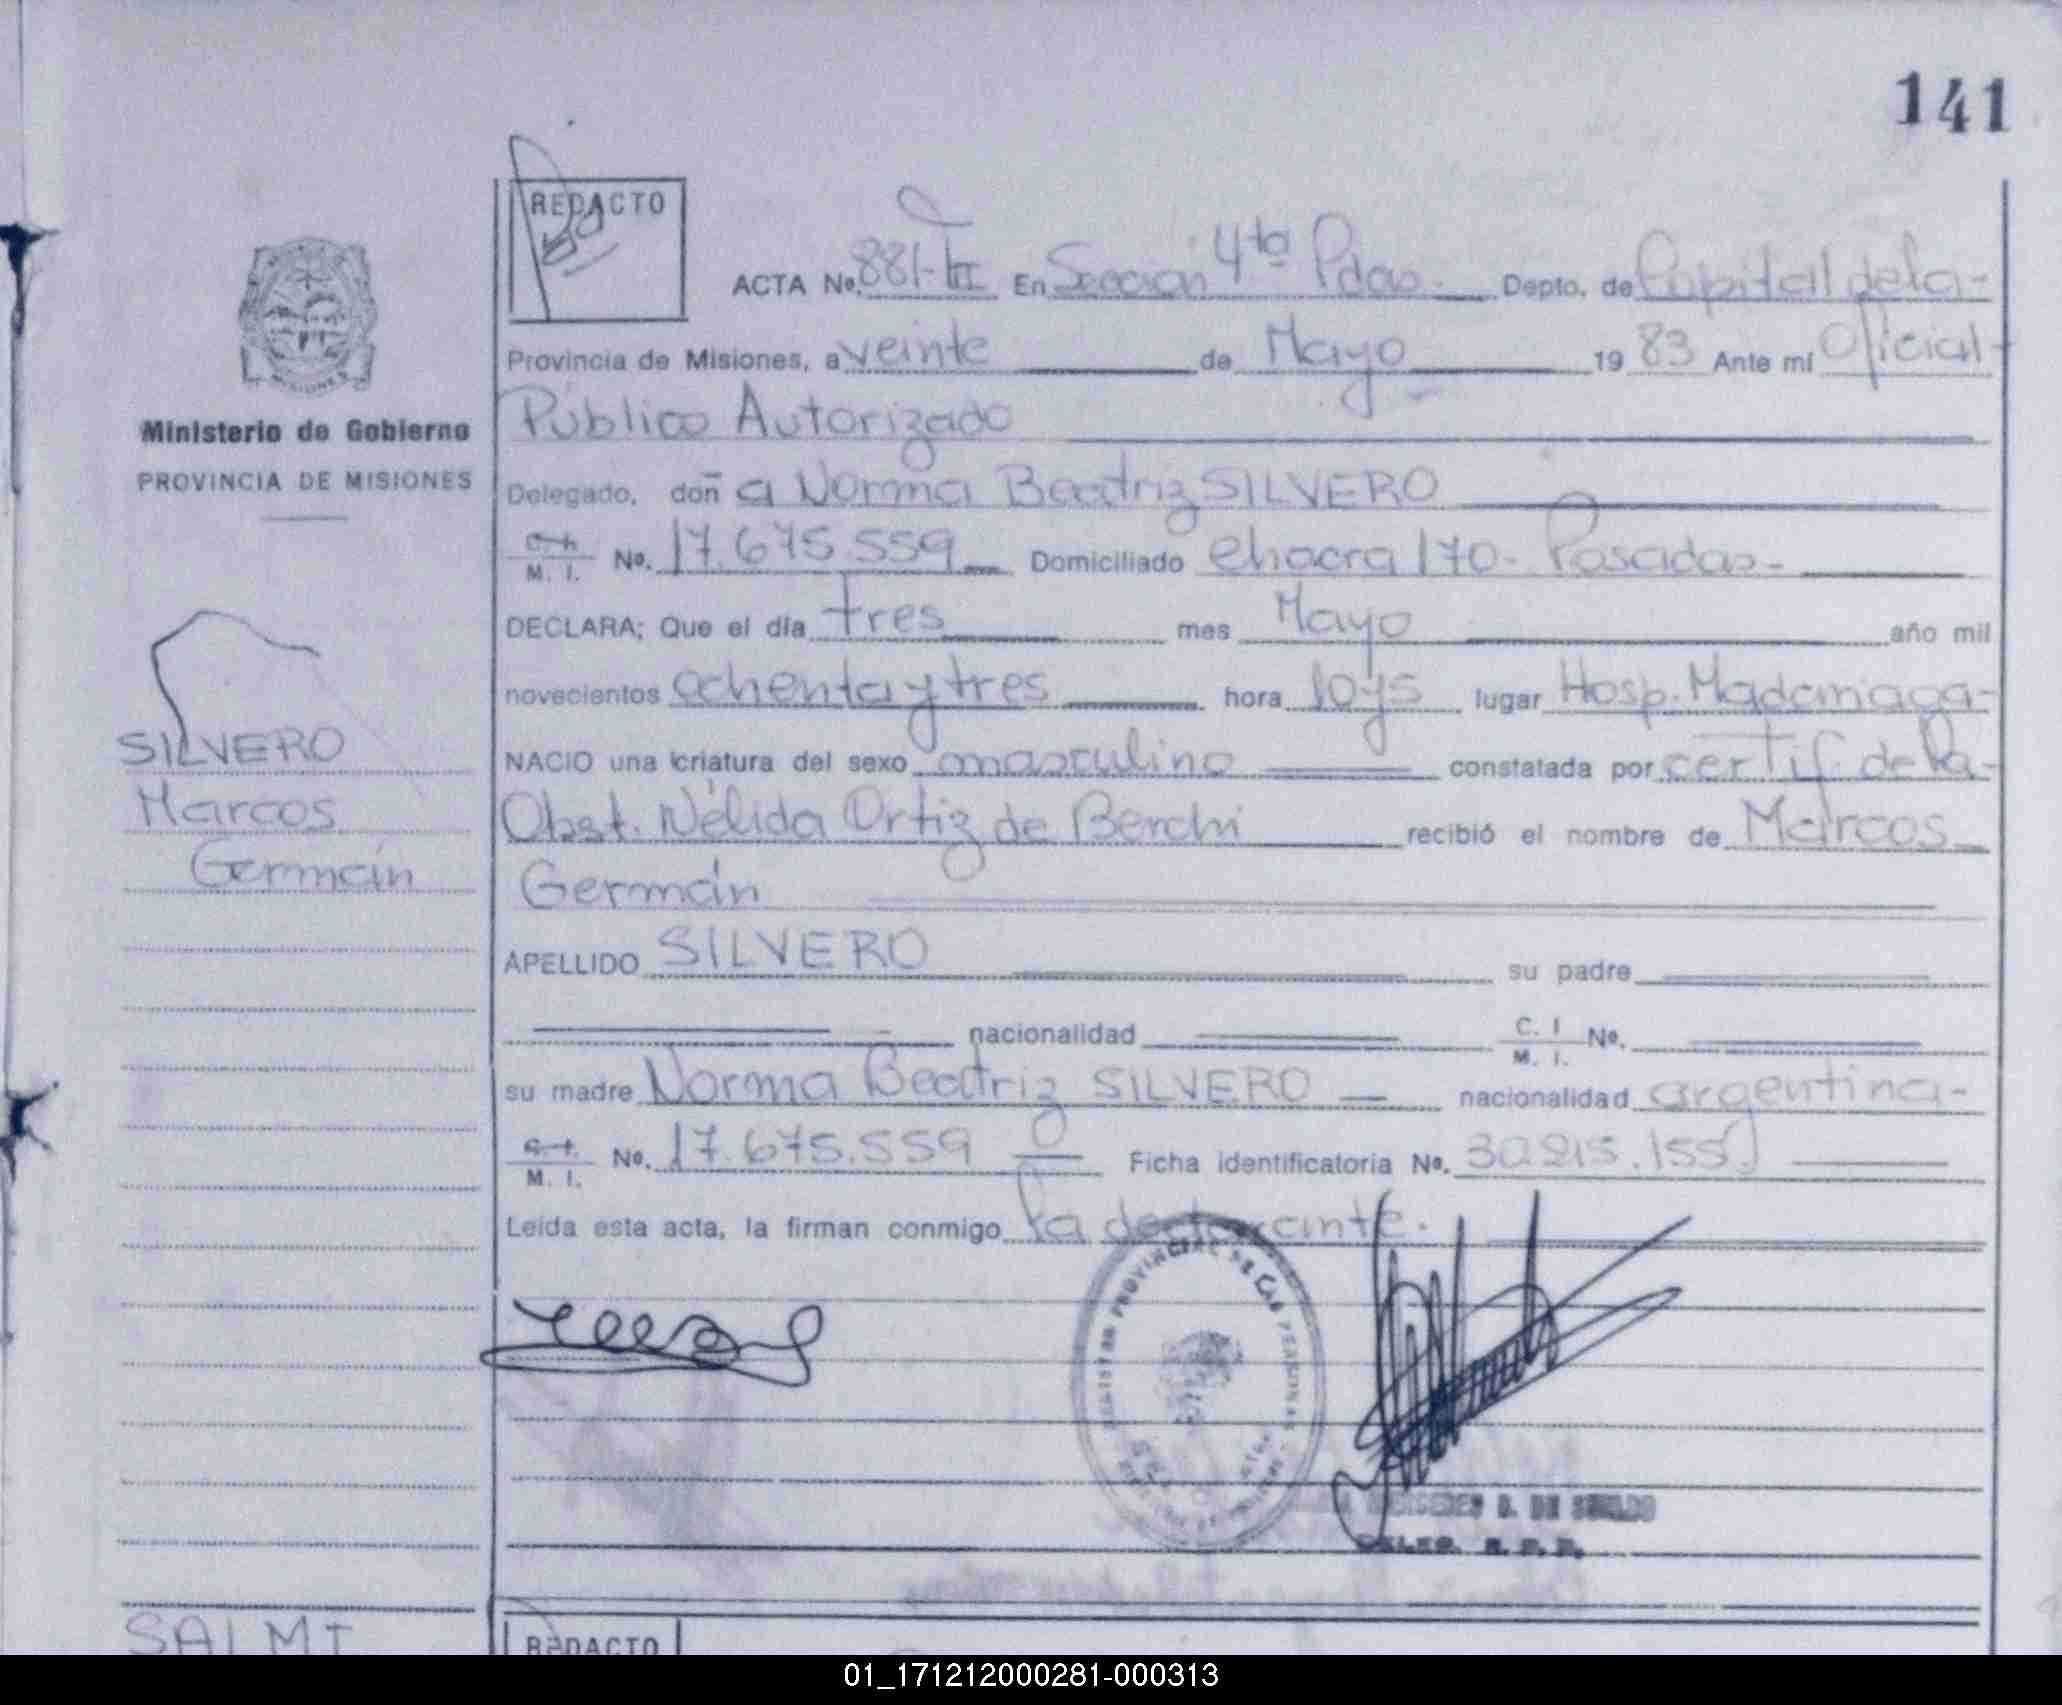 141
REDACTO
ACTA No. 881-TII En Sección 4ta Pdas. Depto. de Capital de la-
Provincia de Misiones, a veinte de Mayo 19 83 Ante mí Oficial-
Público Autorizado
Ministerio de Gobierno
PROVINCIA DE MISIONES
Delegado, doñ a Norma Beatriz SILVERO
M. I. No. 17.675.559 Domiciliado Chacra 170- Posadas-
DECLARA; Que el día tres mes Mayo año mil
novecientos ochenta y tres hora 10 y 5 lugar Hosp. Madariaga-
SILVERO
Marcos
Germán
NACIO una criatura del sexo masculino constatada por certif. de la-
Obst. Nélida Ortiz de Berchi recibió el nombre de Marcos
Germán
APELLIDO SILVERO su padre
nacionalidad C. I. M. I. No.
su madre Norma Beatriz SILVERO nacionalidad argentina-
M. I. No. 17.675.559 Ficha identificatoria No. 30.215.155
Leída esta acta, la firman conmigo la declarante.
PROVINCIAL DE LAS PERSONAS
DE
SALMI
REDACTO
01_171212000281-000313